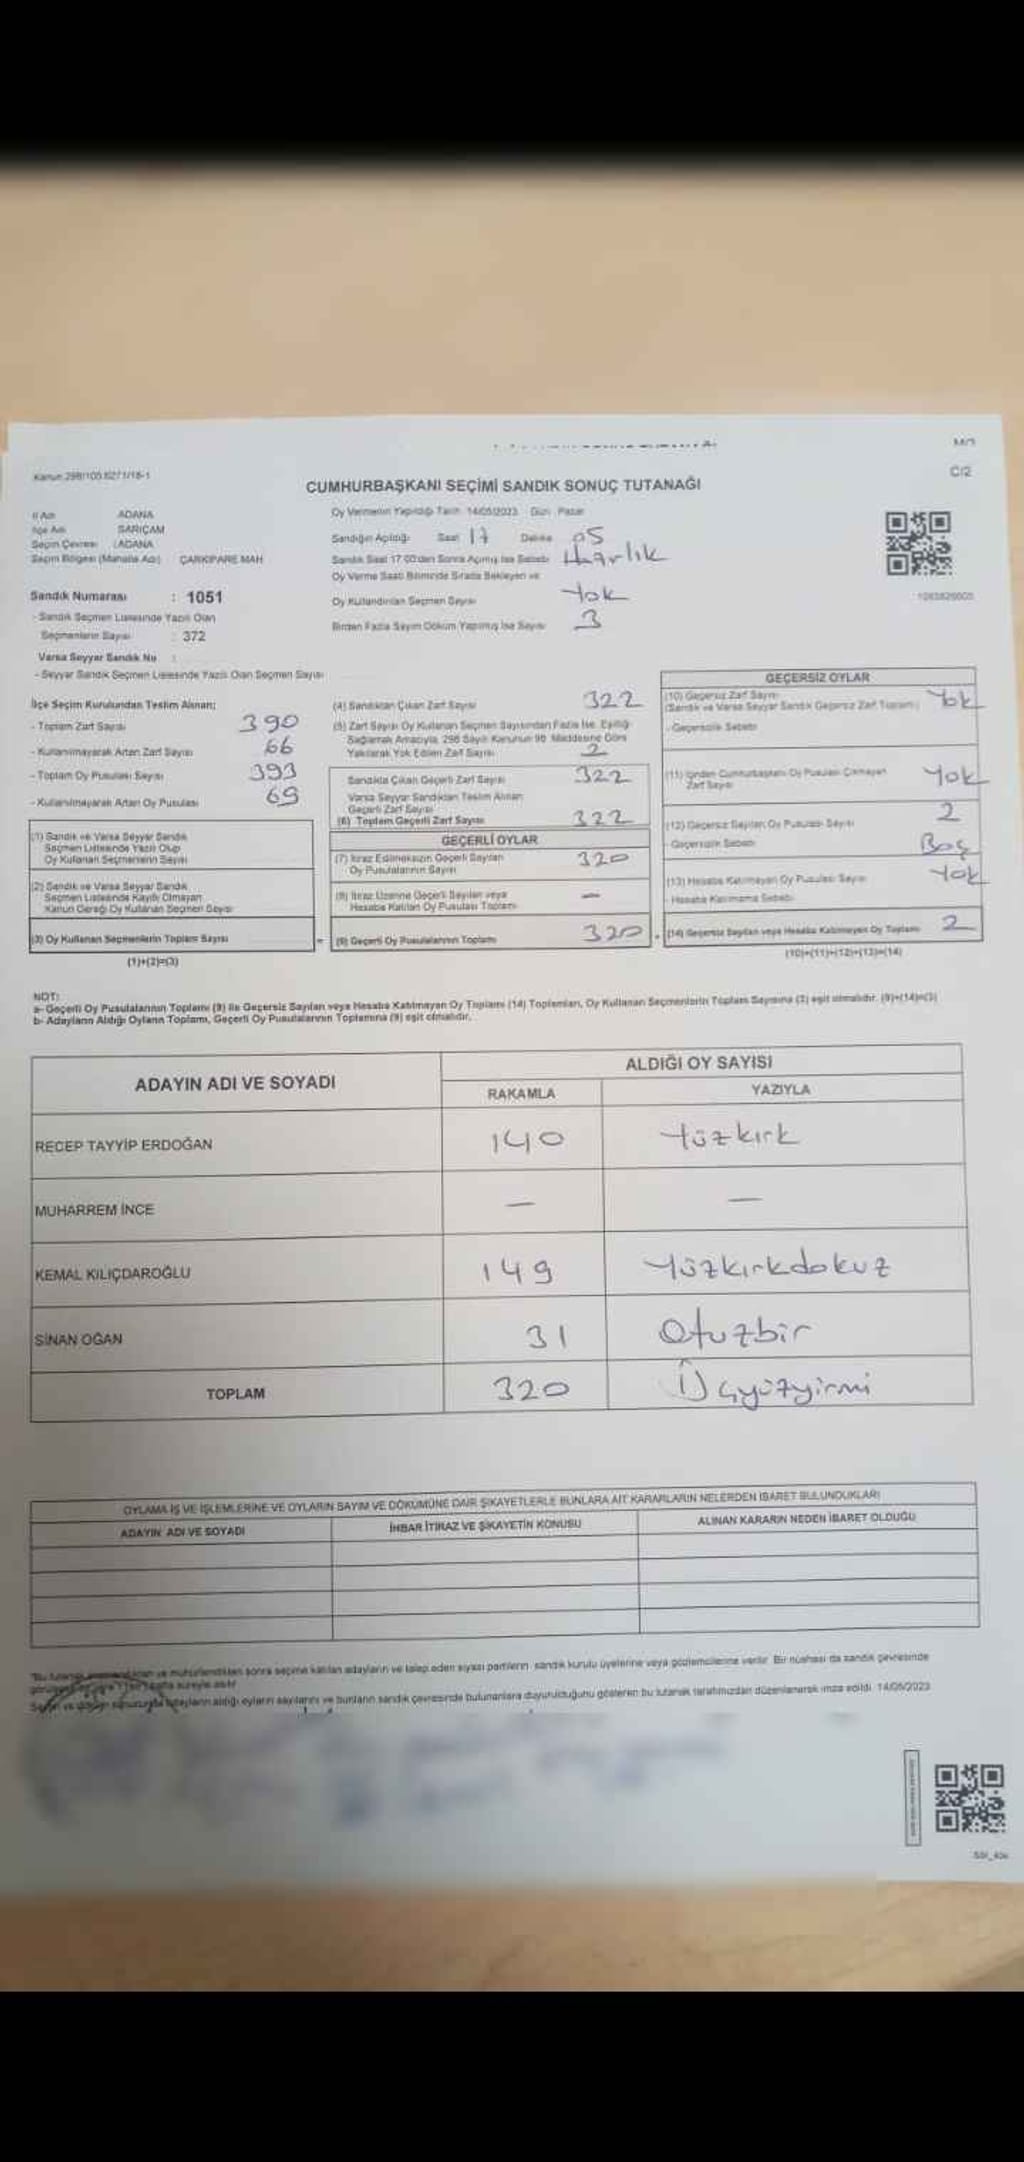 M/3
C/2
Kanun:298/100.6271/18-1
CUMHURBAŞKANI SEÇİMİ SANDIK SONUÇ TUTANAĞI
İl Adı ADANA
İlçe Adı SARIÇAM
Seçim Çevresi : ADANA
Seçim Bölgesi (Mahalle Adı) ÇARKIPARE MAH
Sandık Numarası : 1051
- Sandık Seçmen Listesinde Yazılı Olan
Seçmenlerin Sayısı : 372
Varsa Seyyar Sandık No :
- Seyyar Sandık Seçmen Listesinde Yazılı Olan Seçmen Sayısı
Oy Vermenin Yapıldığı Tarih 14/05/2023 Gün Pazar
Sandığın Açıldığı Saat 17 Dakika 05
Sandık Saat 17.00'den Sonra Açılmış İse Sebebi Hazırlık
Oy Verme Saati Bitiminde Sırada Bekleyen ve
Oy Kullandırılan Seçmen Sayısı Yok
Birden Fazla Sayım Döküm Yapılmış İse Sayısı 3
İlçe Seçim Kurulundan Teslim Alınan;
- Toplam Zarf Sayısı 390
- Kullanılmayarak Artan Zarf Sayısı 66
- Toplam Oy Pusulası Sayısı 393
- Kullanılmayarak Artan Oy Pusulası 69
(1) Sandık ve Varsa Seyyar Sandık
Seçmen Listesinde Yazılı Olup
Oy Kullanan Seçmenlerin Sayısı
(2) Sandık ve Varsa Seyyar Sandık
Seçmen Listesinde Kayıtlı Olmayan
Kanun Gereği Oy Kullanan Seçmen Sayısı
(3) Oy Kullanan Seçmenlerin Toplam Sayısı
(1)+(2)=(3)
(4) Sandıktan Çıkan Zarf Sayısı 322
(5) Zarf Sayısı Oy Kullanan Seçmen Sayısından Fazla İse, Eşitliği
Sağlamak Amacıyla, 298 Sayılı Kanunun 98. Maddesine Göre
Yakılarak Yok Edilen Zarf Sayısı 2
Sandıkta Çıkan Geçerli Zarf Sayısı 322
Varsa Seyyar Sandıktan Teslim Alınan
Geçerli Zarf Sayısı
(6) Toplam Geçerli Zarf Sayısı 322
GEÇERLİ OYLAR
(7) İtiraz Edilmeksizin Geçerli Sayılan
Oy Pusulalarının Sayısı 320
(8) İtiraz Üzerine Geçerli Sayılan veya
Hesaba Katılan Oy Pusulası Toplamı —
= (9) Geçerli Oy Pusulalarının Toplamı 320 +
GEÇERSİZ OYLAR
(10) Geçersiz Zarf Sayısı
(Sandık ve Varsa Seyyar Sandık Geçersiz Zarf Toplamı) Yok
- Geçersizlik Sebebi
(11) İçinden Cumhurbaşkanı Oy Pusulası Çıkmayan
Zarf Sayısı Yok
(12) Geçersiz Sayılan Oy Pusulası Sayısı 2
- Geçersizlik Sebebi Boş
(13) Hesaba Katılmayan Oy Pusulası Sayısı Yok
- Hesaba Katılmama Sebebi
(14) Geçersiz Sayılan veya Hesaba Katılmayan Oy Toplamı 2
(10)+(11)+(12)+(13)=(14)
NOT:
a- Geçerli Oy Pusulalarının Toplamı (9) ile Geçersiz Sayılan veya Hesaba Katılmayan Oy Toplamı (14) Toplamları, Oy Kullanan Seçmenlerin Toplam Sayısına (3) eşit olmalıdır. (9)+(14)=(3)
b- Adayların Aldığı Oyların Toplamı, Geçerli Oy Pusulalarının Toplamına (9) eşit olmalıdır.
ADAYIN ADI VE SOYADI
ALDIĞI OY SAYISI
RAKAMLA YAZIYLA
RECEP TAYYİP ERDOĞAN 140 Yüzkırk
MUHARREM İNCE — —
KEMAL KILIÇDAROĞLU 149 Yüzkırkdokuz
SİNAN OĞAN 31 Otuzbir
TOPLAM 320 Üçyüzyirmi
OYLAMA İŞ VE İŞLEMLERİNE VE OYLARIN SAYIM VE DÖKÜMÜNE DAİR ŞİKAYETLERLE BUNLARA AİT KARARLARIN NELERDEN İBARET BULUNDUKLARI
ADAYIN ADI VE SOYADI İHBAR İTİRAZ VE ŞİKAYETİN KONUSU ALINAN KARARIN NEDEN İBARET OLDUĞU
sonra seçime katılan adayların ve talep eden siyasi partilerin sandık kurulu üyelerine veya gözlemcilerine verilir. Bir nüshası da sandık çevresinde
hafta süreyle asılır
adayların aldığı oyların sayılarını ve bunların sandık çevresinde bulunanlara duyurulduğunu gösteren bu tutanak tarafımızdan düzenlenerek imza edildi. 14/05/2023